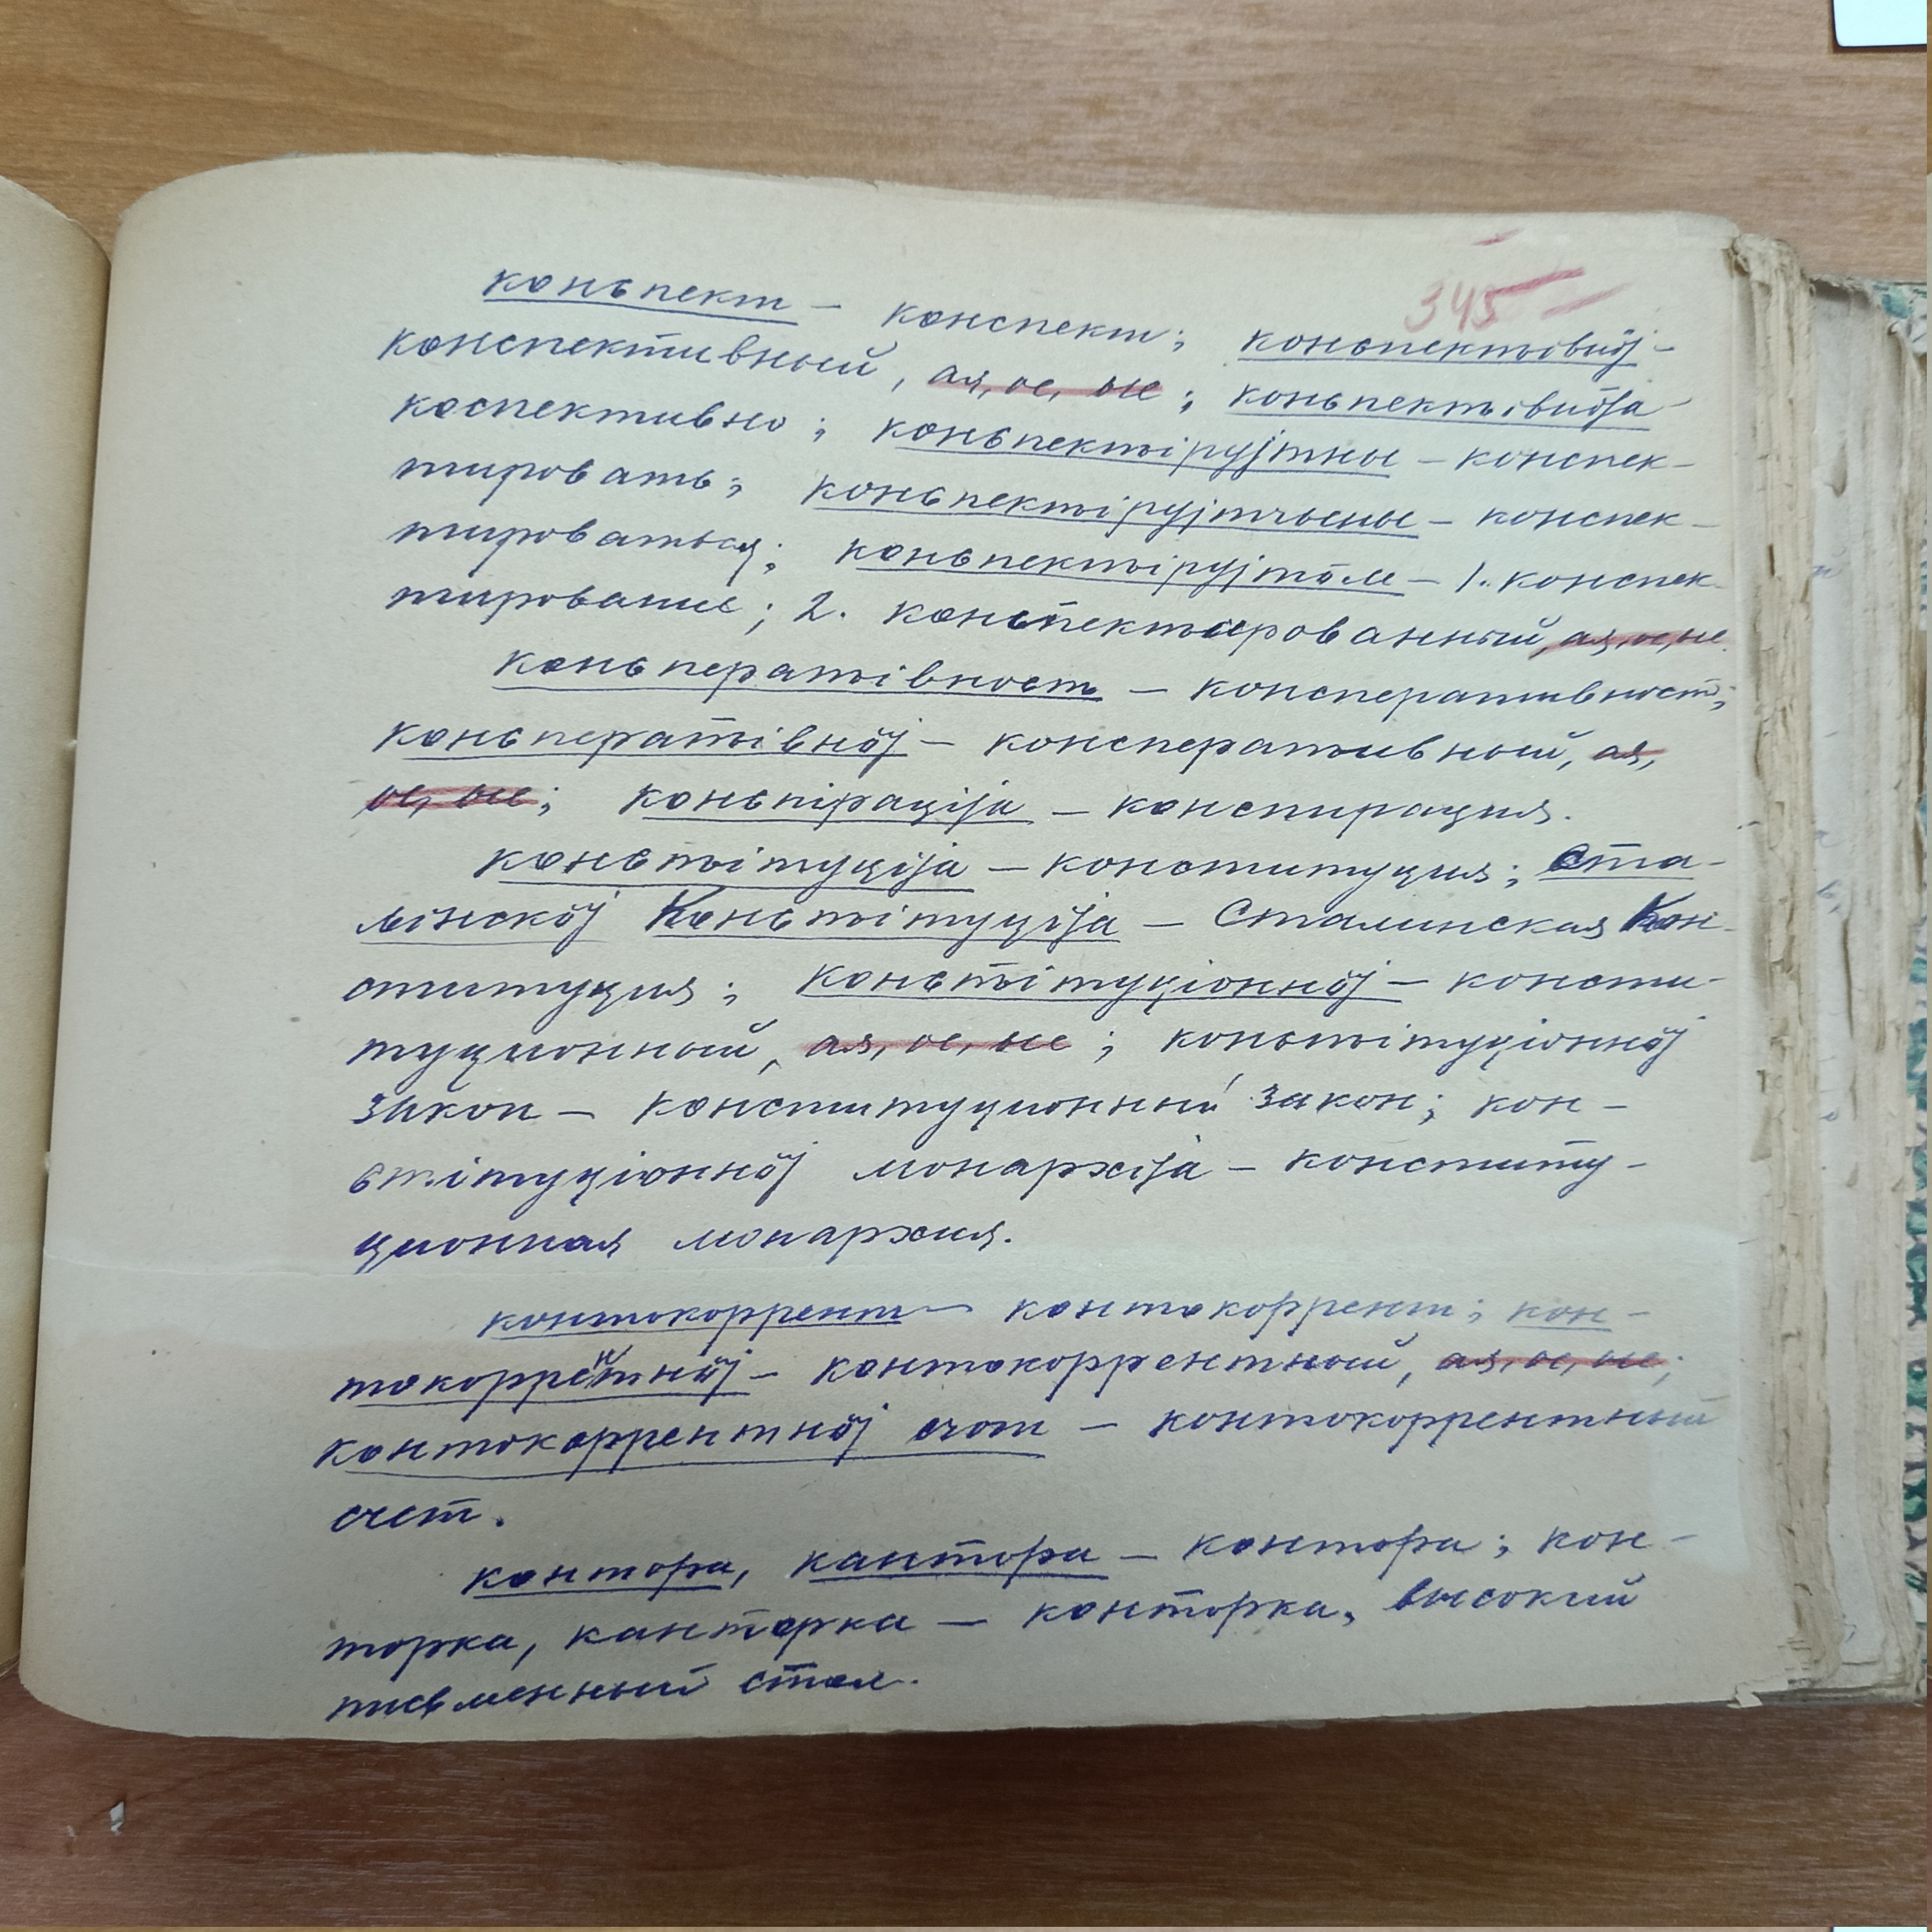 345
конԍпект – конспект; конԍпектԏівнӧј –
конспективный, ая, ое, ые; конԍпектԏівнӧја
коспективно; конԍпектԏірујтны – конспек-
тировать; конԍпектԏірујтчыны – конспек-
тироваться; конԍпектԏірујтӧм – 1. конспек-
тирование; 2. конспектированный, ая, ое, ые.
конԍператԏівност – консперативност;
конԍператԏівнӧј – консперативный, ая,
ое, ые; конԍпіраціја – конспирация.
конԍԏітуціја – конституция; Ста-
ԉінскӧј Конԍԏітуціја – Сталинская Кон-
ституция; конԍԏітуціоннӧј – консти-
туционный, ая, ое, ые; конԍԏітуціоннӧј
закон – конституционный закон; кон-
ԍԏітуціоннӧј монархіја – конститу-
ционная монархия.
контокоррент – контокоррент; кон-
токоррентнӧј – контокоррентный, ая, ое, ые;
контокоррентнӧј счот – контокоррентный
счет.
контора, кантора – контора; кон-
торка, канторка – конторка, высокий
письменный стол.